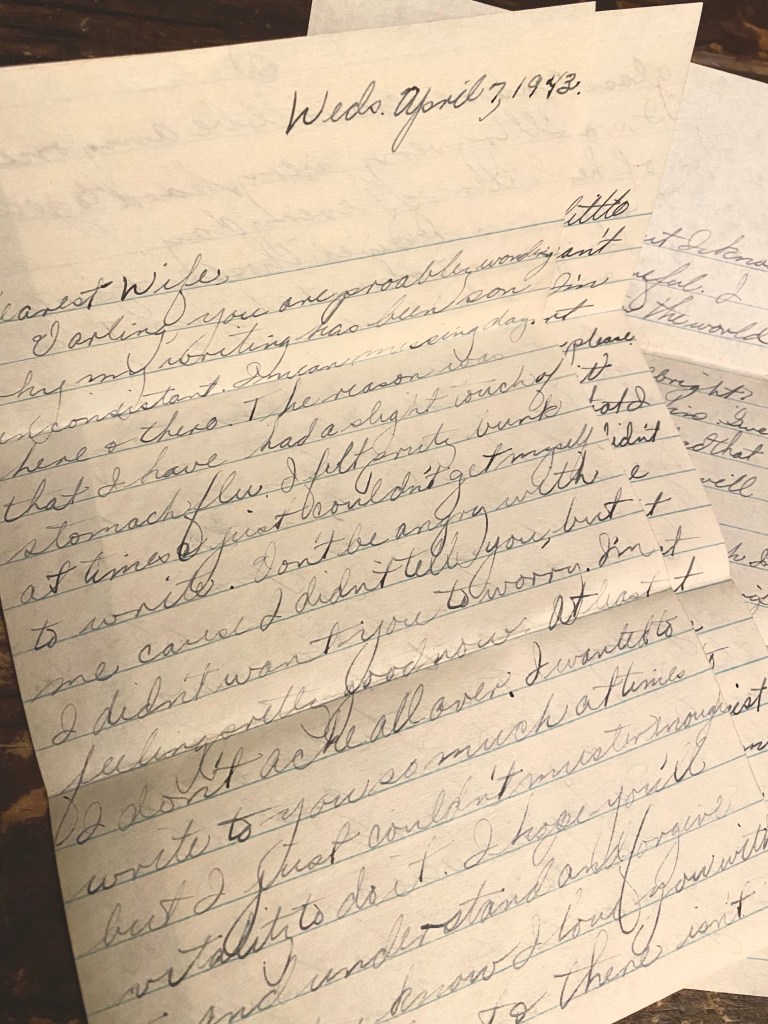 Weds. April 7, 1943.
earest Wife,
Darling, you are proable wondering
hy my writing has been son
inconsistant. I mean missing days
here & there. The reason was
that I have had a slight touch of
stomach flu. I felt prety bunk
at times & just couldn't get myself
to write. Don't be angry with
me cause I didn't tell you, but
I didn't want you to worry. I'm
feeling prette good now. At least
I don't ache all over. I wanted to
write to you so much at times
but I just couldn't muster enough
vitality to do it. I hope you'll
and understand and forgive
know I love you with
to there isn't
little
an't
I'm
rt
please
it
at I
idn't
e
t
t
t
ist
it I know
eful. I
the world
bright?
I've
d that
will